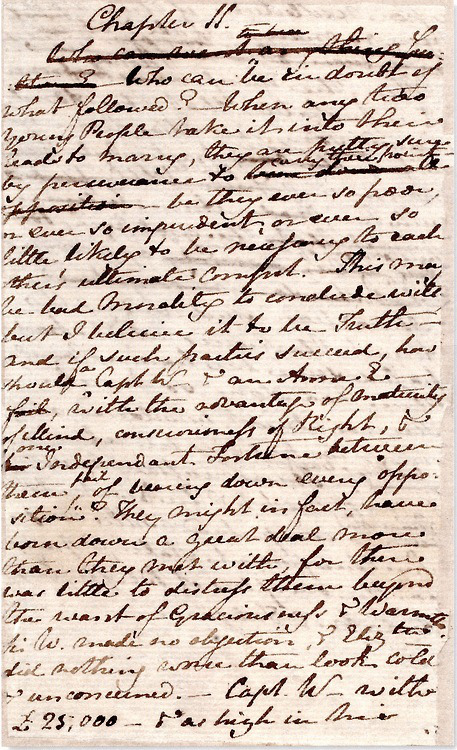 Chapter 11.
Who can be in doubt of
what followed? When any two
Young People take it into their
heads to marry, they are pretty sure
by perseverance to carry their point
be they ever so poor,
or ever so imprudent, or ever so
little likely to be necessary to each
other's ultimate comfort. This may
be bad Morality to conclude with
but I believe it to be Truth—
and if such parties succeed, how
should a Capt W— & an Anne E—
fail, with the advantage of maturity
of Mind, consciousness of Right, &
one Independant Fortune between
them fail of bearing down every oppo-
sition? They might in fact, have
born down a great deal more
than they met with, for there
was little to distress them beyond
the want of Graciousness & Warmth.
Sir W. made no objection, & Eliz:th
did nothing worse than look cold
& unconcerned.— Capt. W— with
£ 25,000— & as high in his